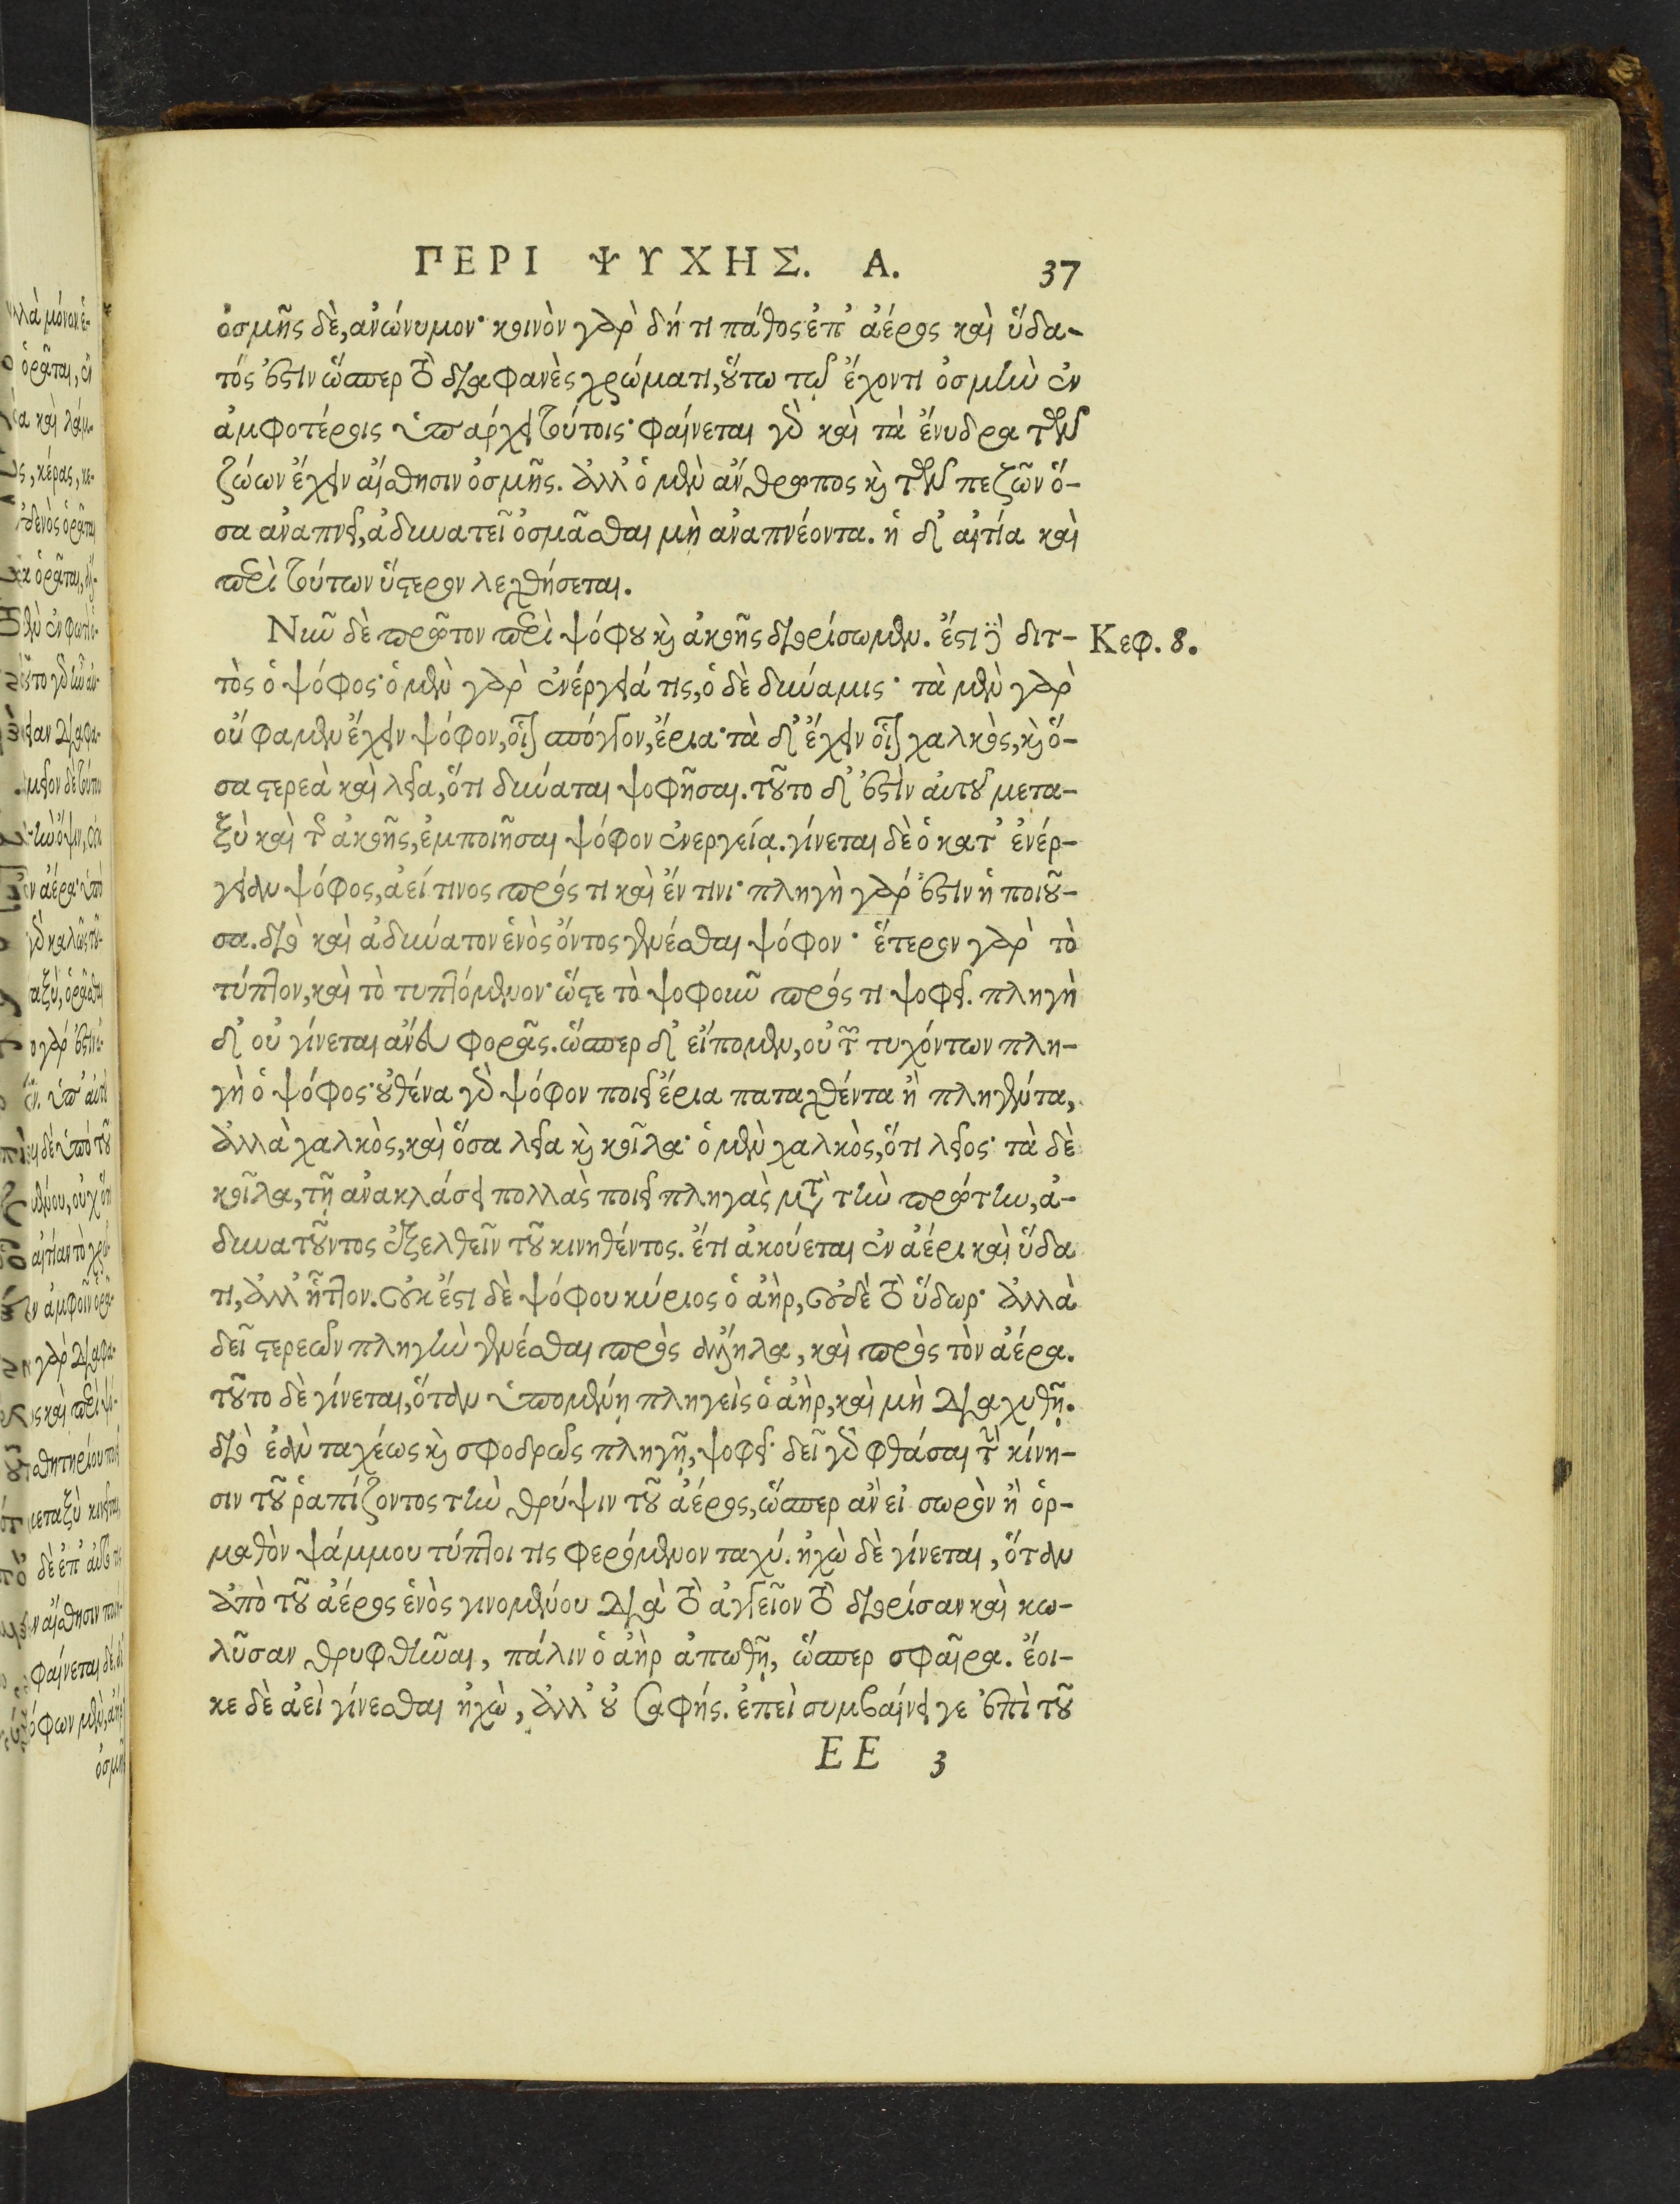 ΠΕΡΙ ΨΥΧΗΣ. Α. 37
ὀσμῆς δὲ, ἀνώνυμον· κοινὸν γὰρ δή τι πάθος ἐπ' ἀέρος καὶ ὕδα-
τός ἐστιν ὥσπερ τὸ διαφανὲς χρώματι, οὕτω τῷ ἔχοντι ὀσμὴν ἐν
ἀμφοτέροις ὑπάρχει τούτοις· φαίνεται γὰρ καὶ τὰ ἔνυδρα τῶν
ζώων ἔχειν αἴσθησιν ὀσμῆς. ἀλλ' ὁ μὲν ἄνθρωπος καὶ τῶν πεζῶν ὅ-
σα ἀναπνεῖ, ἀδυνατεῖ ὀσμᾶσθαι μὴ ἀναπνέοντα. ἡ δ' αἰτία καὶ
περὶ τούτων ὕστερον λεχθήσεται.
Νῦν δὲ πρῶτον περὶ ψόφου καὶ ἀκοῆς διορίσωμεν. ἔστι δὲ διτ- Κεφ. 8.
τὸς ὁ ψόφος· ὁ μὲν γὰρ ἐνέργειά τις, ὁ δὲ δύναμις· τὰ μὲν γὰρ
οὔ φαμεν ἔχειν ψόφον, οἷον σπόγγον, ἔρια· τὰ δ' ἔχειν οἷον χαλκὸς, καὶ ὅ-
σα στερεὰ καὶ λεῖα, ὅτι δύναται ψοφῆσαι. τοῦτο δ' ἐστὶν αὐτοῦ μετα-
ξὺ καὶ τῆς ἀκοῆς, ἐμποιῆσαι ψόφον ἐνεργείᾳ. γίνεται δὲ ὁ κατ' ἐνέρ-
γειαν ψόφος, ἀεί τινος πρός τι καὶ ἔν τινι· πληγὴ γάρ ἐστιν ἡ ποιοῦ-
σα. διὸ καὶ ἀδύνατον ἑνὸς ὄντος γενέσθαι ψόφον· ἕτερον γὰρ τὸ
τύπτον, καὶ τὸ τυπτόμενον· ὥστε τὸ ψοφοῦν πρός τι ψοφεῖ. πληγὴ
δ' οὐ γίνεται ἄνευ φορᾶς. ὥσπερ δ' εἴπομεν, οὐ τῶν τυχόντων πλη-
γὴ ὁ ψόφος· οὐθένα γὰρ ψόφον ποιεῖ ἔρια παταχθέντα ἢ πληγέντα,
ἀλλὰ χαλκὸς, καὶ ὅσα λεῖα καὶ κοῖλα· ὁ μὲν χαλκὸς, ὅτι λεῖος· τὰ δὲ
κοῖλα, τῇ ἀνακλάσει πολλὰς ποιεῖ πληγὰς μετὰ τὴν πρώτην, ἀ-
δυνατοῦντος ἐξελθεῖν τοῦ κινηθέντος. ἔτι ἀκούεται ἐν ἀέρι καὶ ὕδα
τι, ἀλλ' ἧττον. οὐκ ἔστι δὲ ψόφου κύριος ὁ ἀὴρ, οὐδὲ τὸ ὕδωρ· ἀλλὰ
δεῖ στερεῶν πληγὴν γενέσθαι πρὸς ἄλληλα, καὶ πρὸς τὸν ἀέρα.
τοῦτο δὲ γίνεται, ὅταν ὑπομένῃ πληγεὶς ὁ ἀὴρ, καὶ μὴ διαχυθῇ.
διὸ ἐὰν ταχέως καὶ σφοδρῶς πληγῇ, ψοφεῖ· δεῖ γὰρ φθάσαι τὴν κίνη-
σιν τοῦ ῥαπίζοντος τὴν θρύψιν τοῦ ἀέρος, ὥσπερ ἂν εἰ σωρὸν ἢ ὁρ-
μαθὸν ψάμμου τύπτοι τις φερόμενον ταχύ. ἠχὼ δὲ γίνεται, ὅταν
ἀπὸ τοῦ ἀέρος ἑνὸς γινομένου διὰ τὸ ἀγγεῖον τὸ διορίσαν καὶ κω-
λῦσαν θρυφθῆναι, πάλιν ὁ ἀὴρ ἀπωθῇ, ὥσπερ σφαῖρα. ἔοι-
κε δὲ ἀεὶ γίνεσθαι ἠχὼ, ἀλλ' οὐ σαφής. ἐπεὶ συμβαίνει γε ἐπὶ τοῦ
EE 3